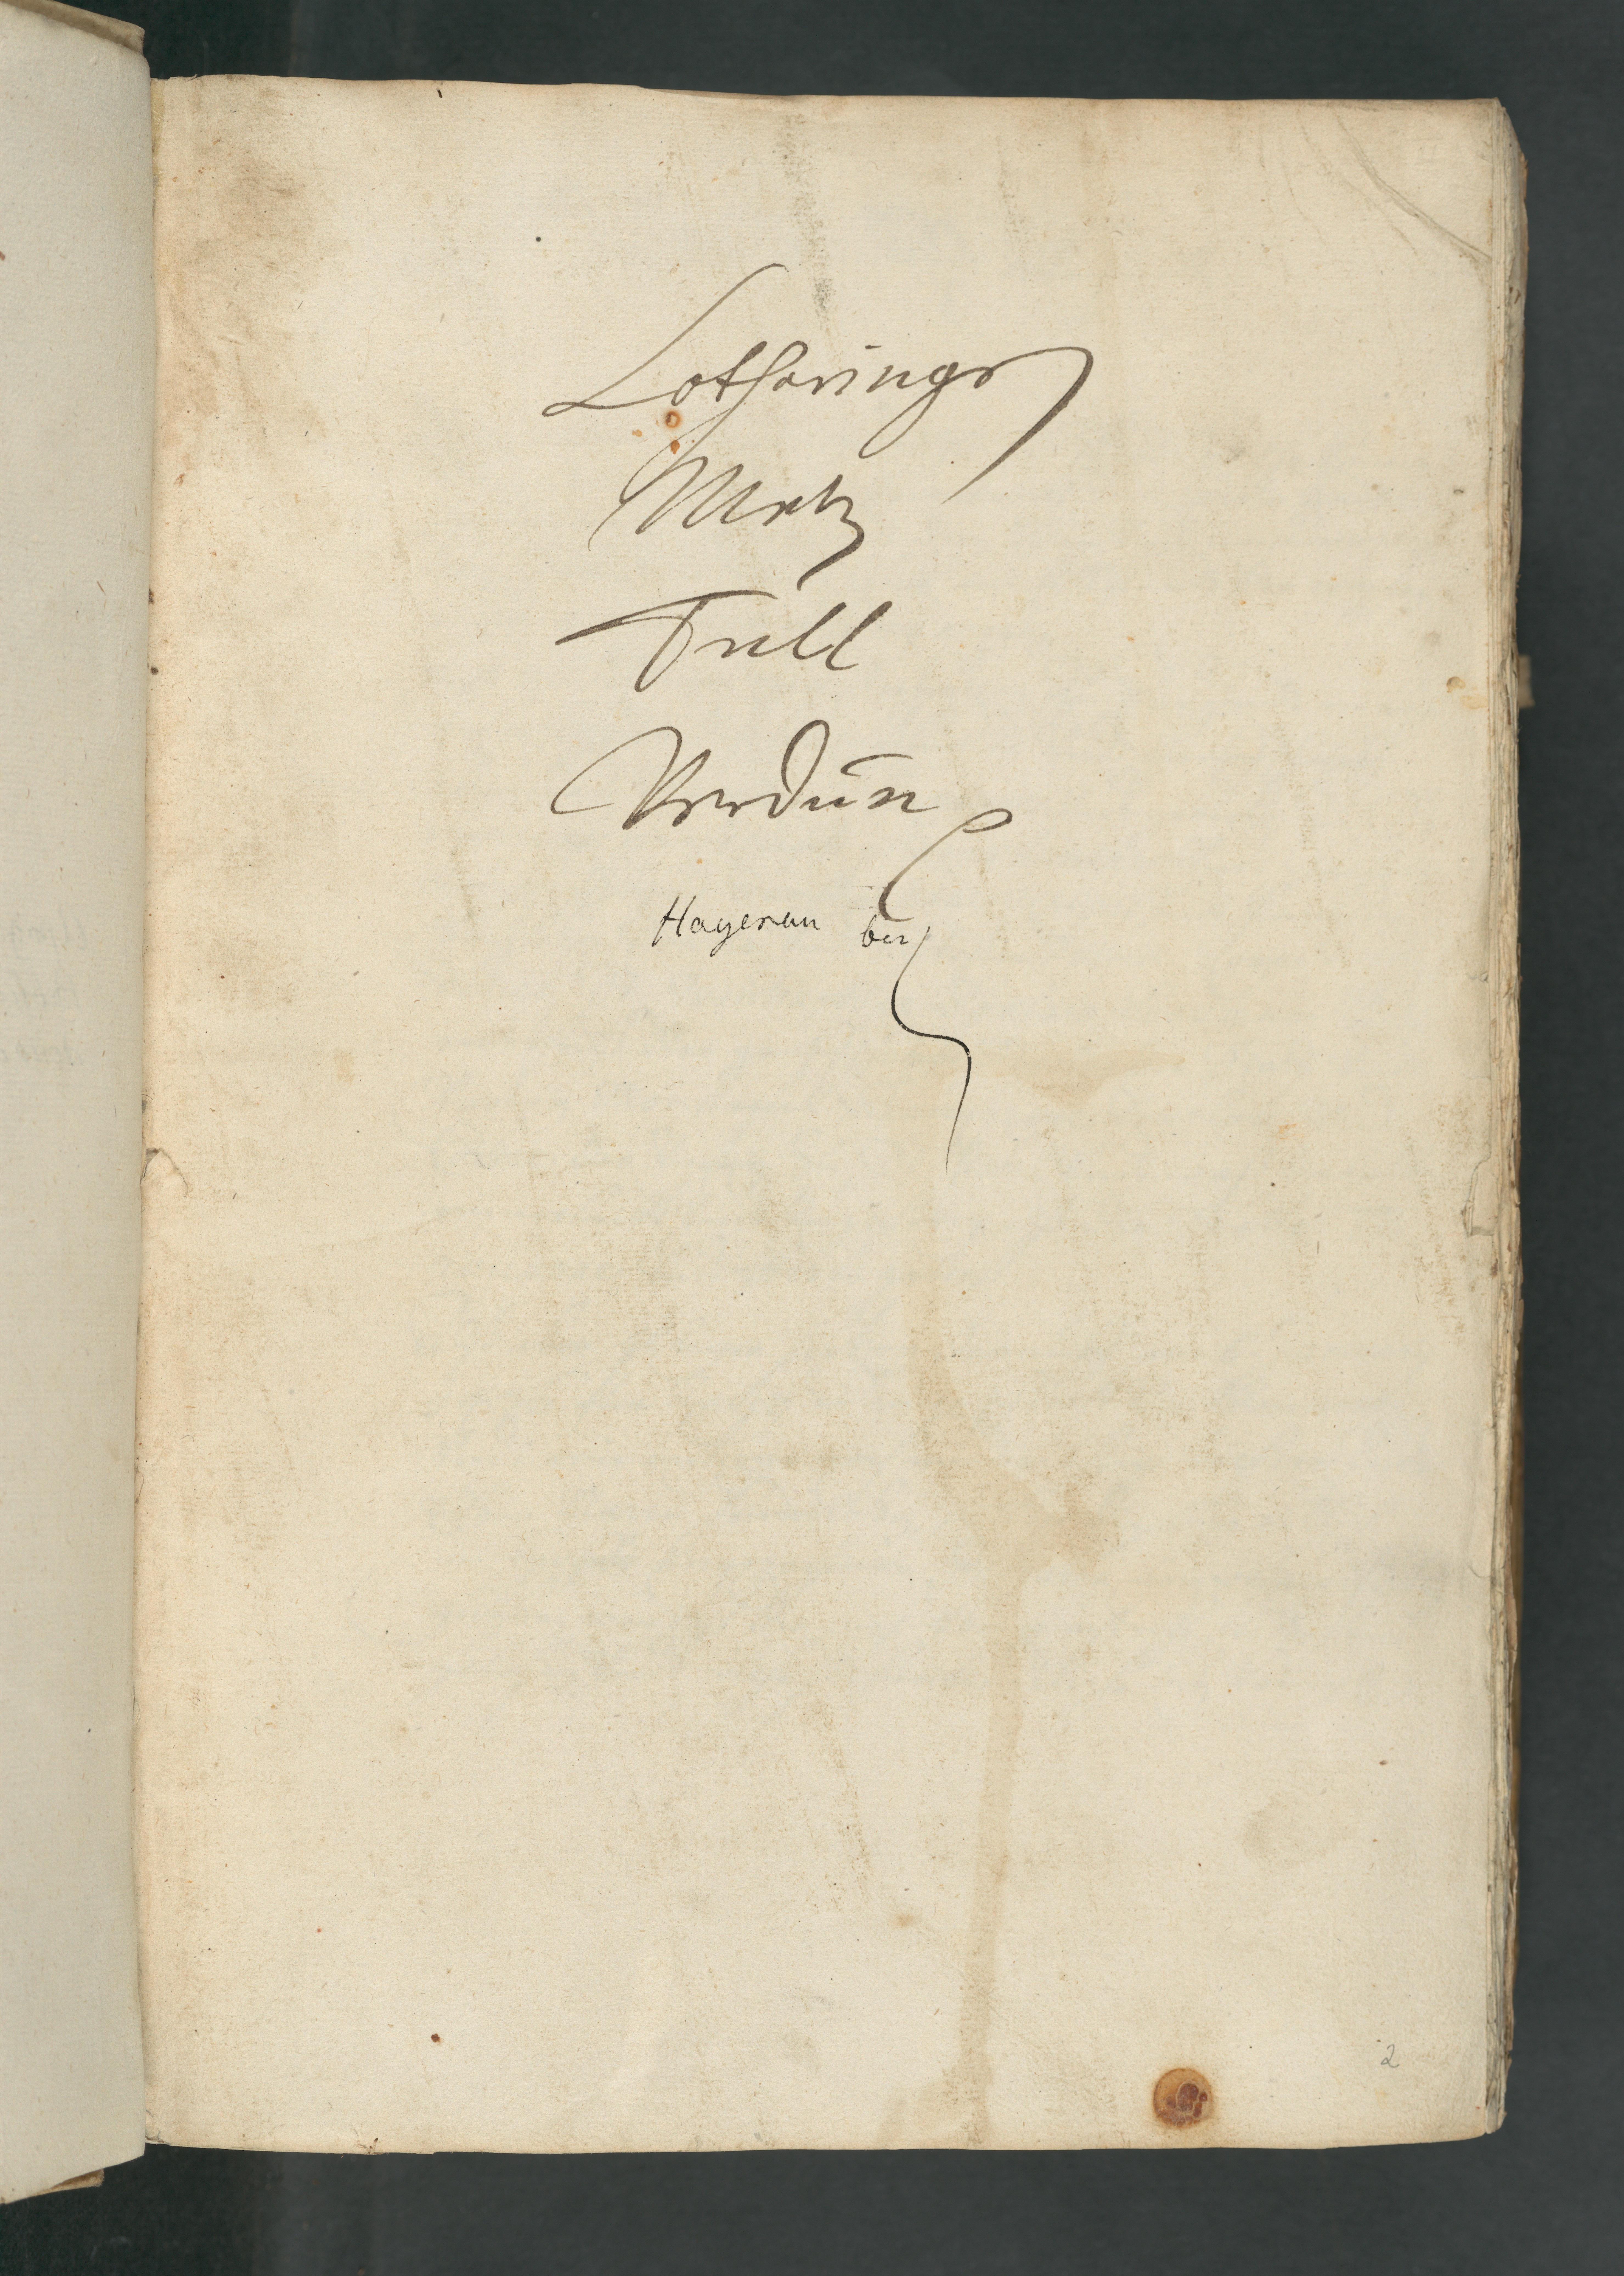 Lotharingen
Metz
Tull
Verdun
Hagenau
2